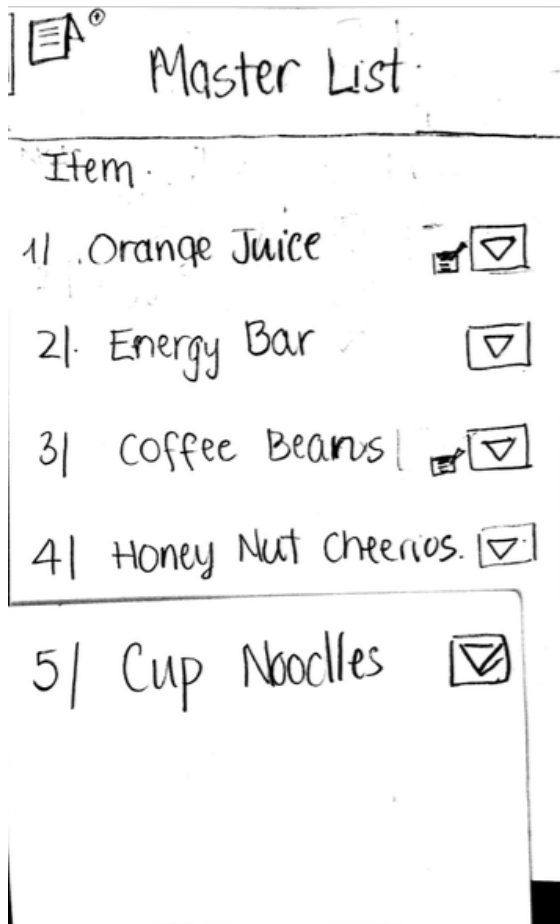 Master List
Item
1| Orange Juice
2| Energy Bar
3| Coffee Beans
4| Honey Nut Cheerios.
5| Cup Noodles